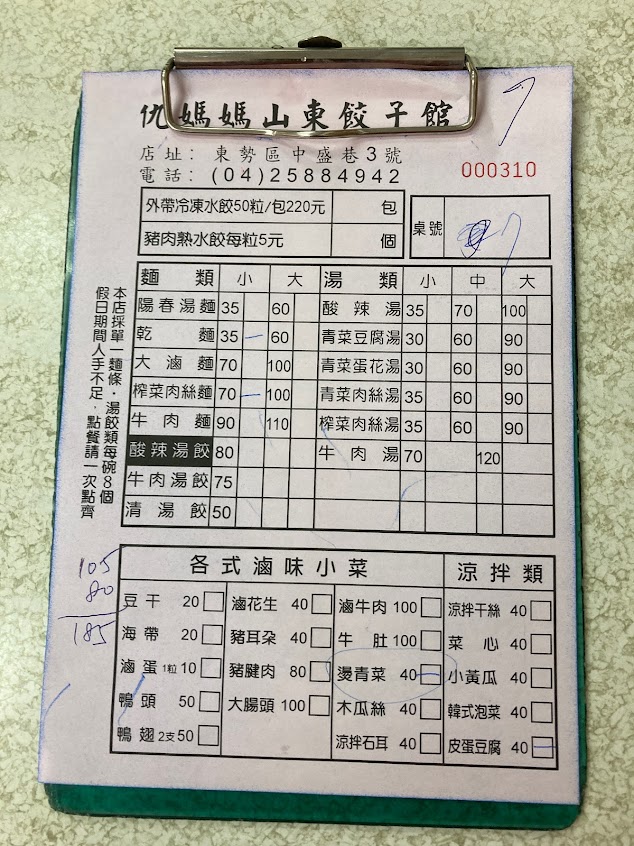 仇媽媽山東餃子館
店址：東勢區中盛巷3號
電話：(04)25884942
000310
外帶冷凍水餃50粒/包220元 包
豬肉熟水餃每粒5元 個
桌號
本店採單一麵條，湯餃類每碗8個
假日期間人手不足，點餐請一次點齊
麵類 小 大
陽春湯麵 35 60
乾麵 35 一 60
大滷麵 70 100
榨菜肉絲麵 70 一 100
牛肉麵 90 110
酸辣湯餃 80
牛肉湯餃 75
清湯餃 50
湯類 小 中 大
酸辣湯 35 70 100
青菜豆腐湯 30 60 90
青菜蛋花湯 30 60 90
青菜肉絲湯 35 60 90
榨菜肉絲湯 35 60 90
牛肉湯 70 120
105
80
185
各式滷味小菜
豆干 20
海帶 20
滷蛋 1粒 10
鴨頭 50
鴨翅 2支 50
滷花生 40
豬耳朵 40
豬腱肉 80
大腸頭 100
滷牛肉 100
牛肚 100
燙青菜 40 一
木瓜絲 40
涼拌石耳 40
涼拌類
涼拌干絲 40
菜心 40
小黃瓜 40
韓式泡菜 40
皮蛋豆腐 40 一